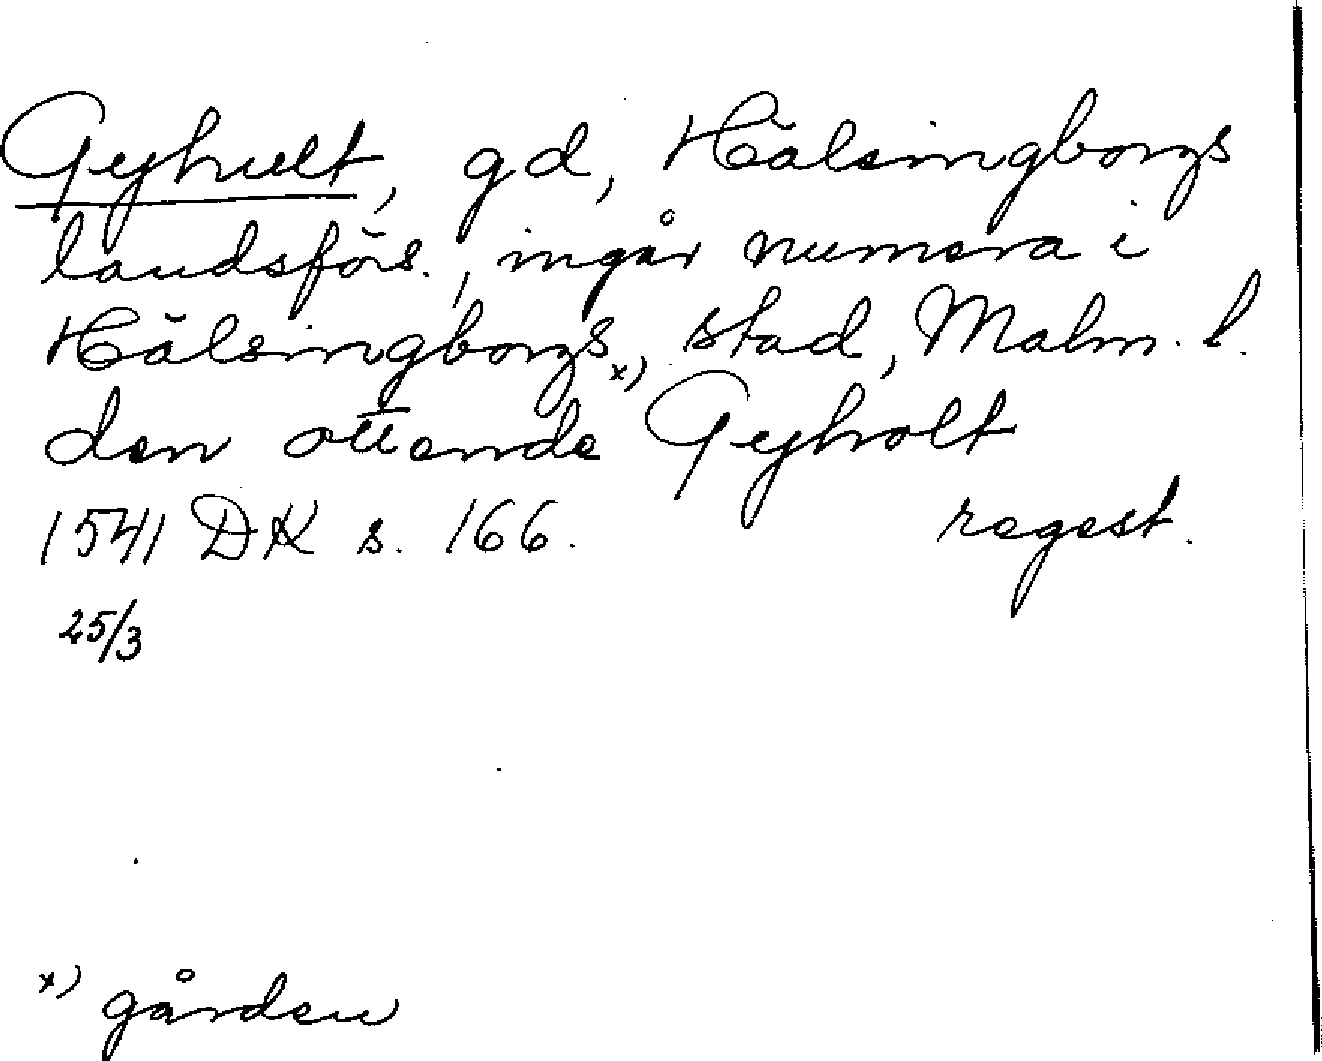 Gyhult, gd, Hälsingborgs
landsförs., ingår numera i
Hälsingborgs stad, Malm. l.
den ottende x) Gyholt
1541 DK s. 166. regest.
25/3
x) gården